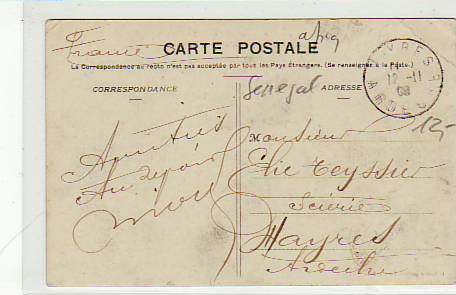 afrq
France
CARTE POSTALE
La Correspondance au recto n'est pas acceptée par tous les Pays Étrangers. (Se renseigner à la Poste.)
MAYRES
12 -11
08
ARDECHE
CORRESPONDANCE
Senegal
ADRESSE
125
Monsieur
Elie Teyssier
Scierie
Mayres
Ardèche
Au revoir